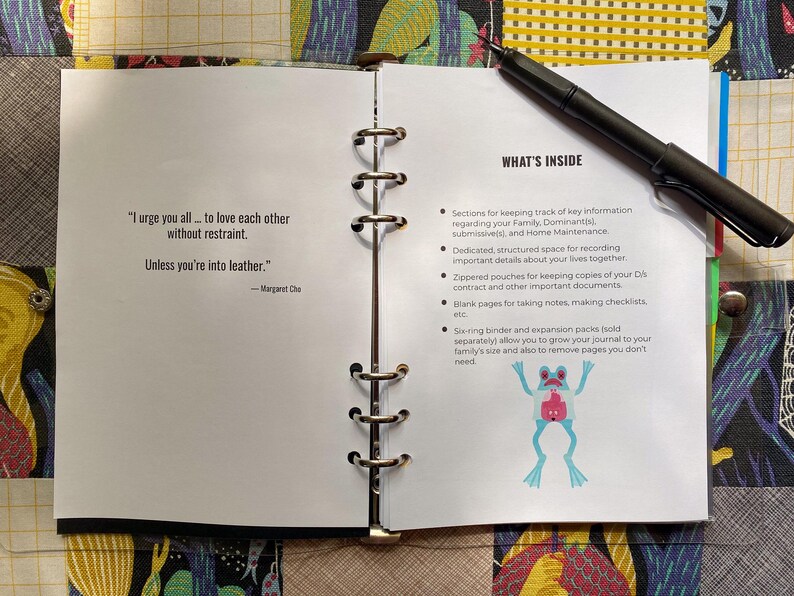 “I urge you all ... to love each other
without restraint.
Unless you’re into leather.”
— Margaret Cho
WHAT’S INSIDE
• Sections for keeping track of key information
regarding your Family, Dominant(s),
submissive(s), and Home Maintenance.
• Dedicated, structured space for recording
important details about your lives together.
• Zippered pouches for keeping copies of your D/s
contract and other important documents.
• Blank pages for taking notes, making checklists,
etc.
• Six-ring binder and expansion packs (sold
separately) allow you to grow your journal to your
family’s size and also to remove pages you don’t
need.